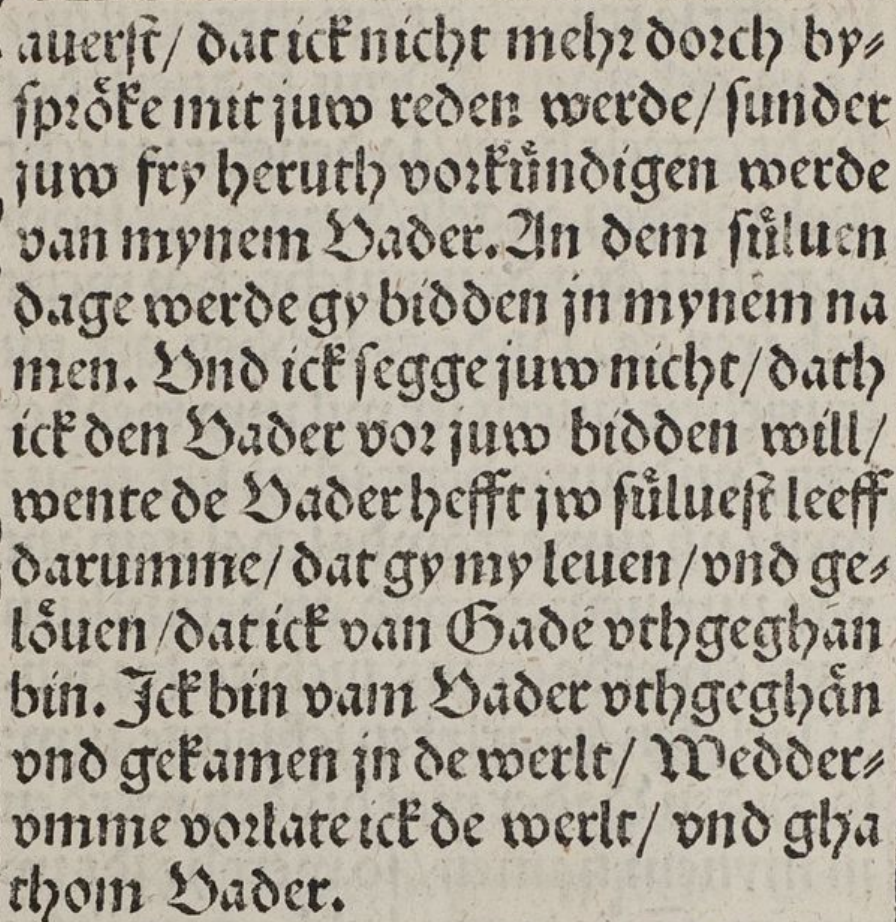 auerſt/ dat ick nicht mehr dorch by⸗
ſproͤke mit juw reden werde/ ſunder
juw fry heruth vorkuͤndigen werde
van mynem Vader. An dem ſuͤluen
dage werde gy bidden jn mynem na
men. Vnd ick ſegge juw nicht/ dath
ick den Vader vor juw bidden will/
wente de Vader hefft jw ſuͤlueſt leeff
darumme/ dat gy my leuen/ vnd ge⸗
loͤuen/ dat ick van Gade vthgeghan
bin. Ick bin vam Vader vthgeghaͤn
vnd gekamen jn de werlt/ Wedder⸗
vmme vorlate ick de werlt/ vnd gha
thom Vader.